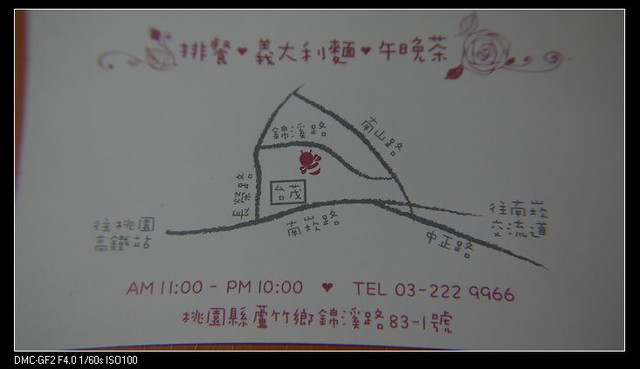 排餐♥義大利麵♥午晚茶
錦溪路
南山路
長榮路
台茂
南崁路
中正路
往桃園
高鐵站
往南崁
交流道
AM 11:00 - PM 10:00 ♥ TEL 03-222 9966
桃園縣蘆竹鄉錦溪路83-1號
DMC-GF2 F4.0 1/60s ISO100